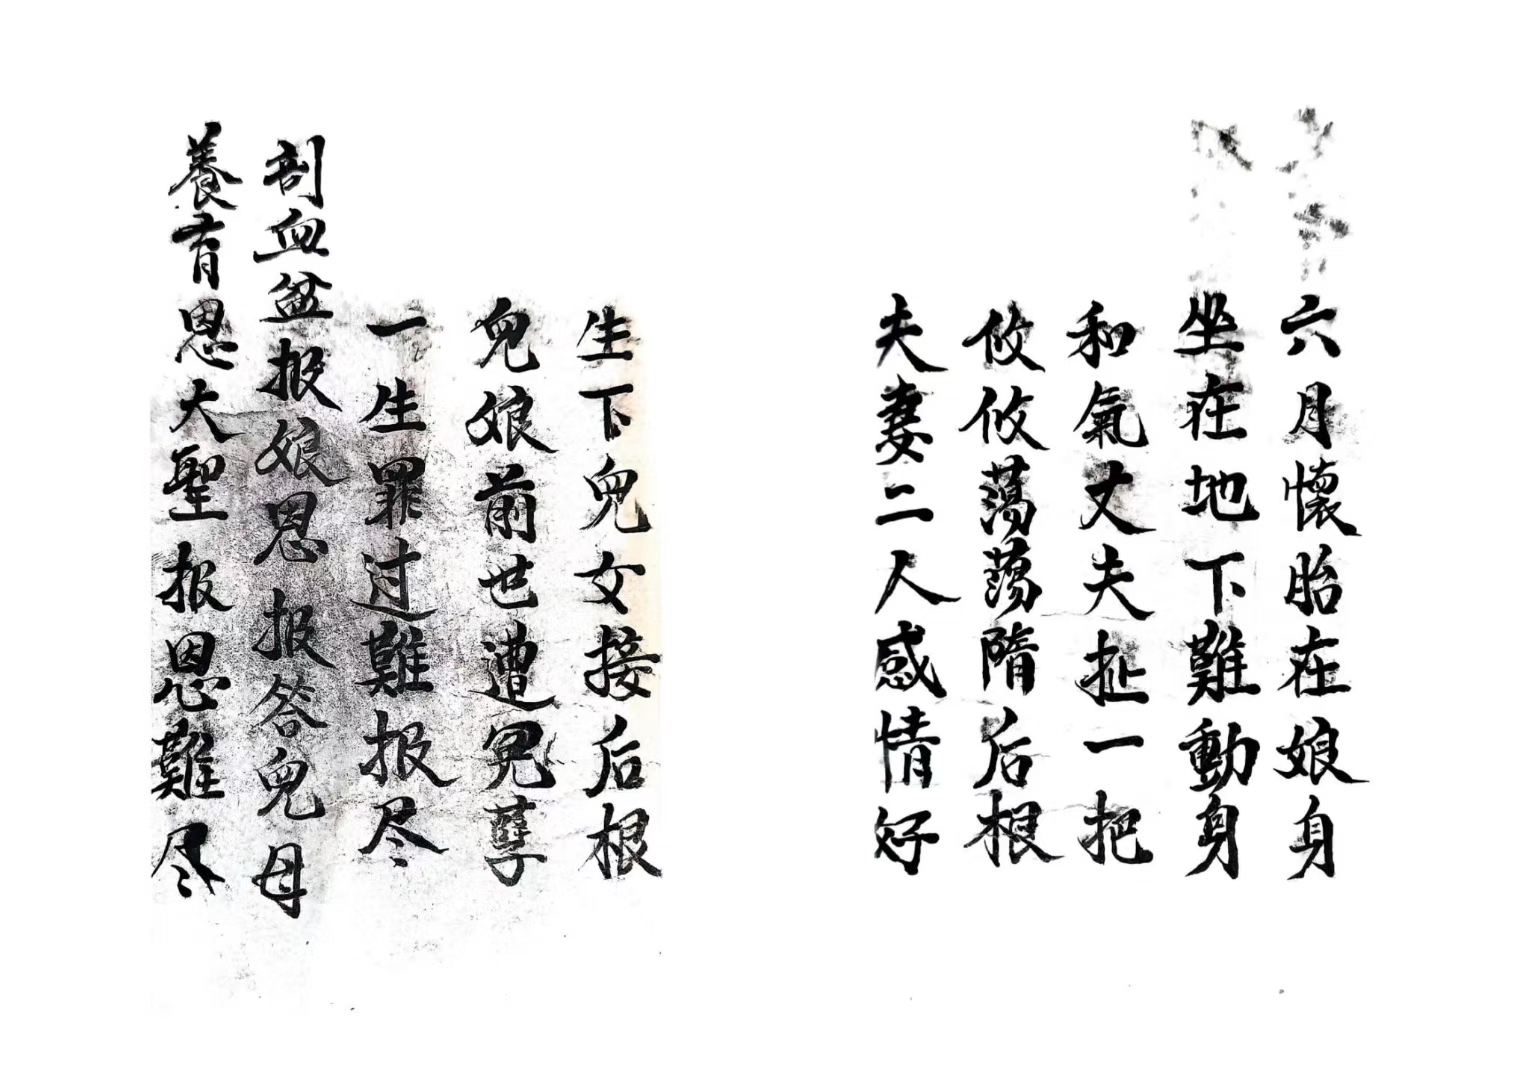 六月懷胎在娘身
坐在地下難動身
和氣丈夫扯一把
攸攸蕩蕩隋后根
夫妻二人感情好
生下兒女接后根
兒娘前世遭冤孽
一生罪过難报尽
剖血盆报娘恩报答兒母
養育恩大聖报恩難尽